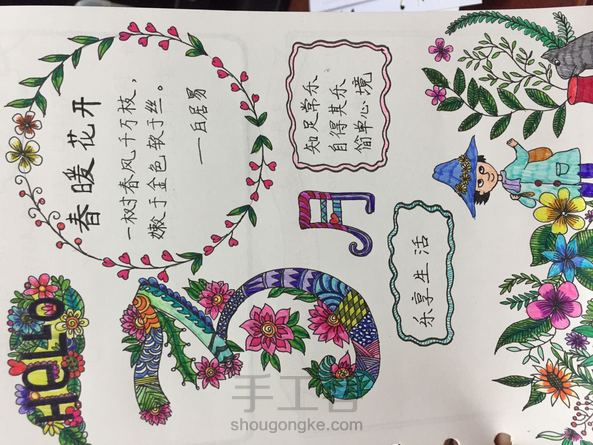 HELLO
春暖花开
一树春风千万枝，
嫩于金色软于丝。
——白居易
5月
知足常乐
自得其乐
简单心境
乐享生活
手工客
shougongke.com